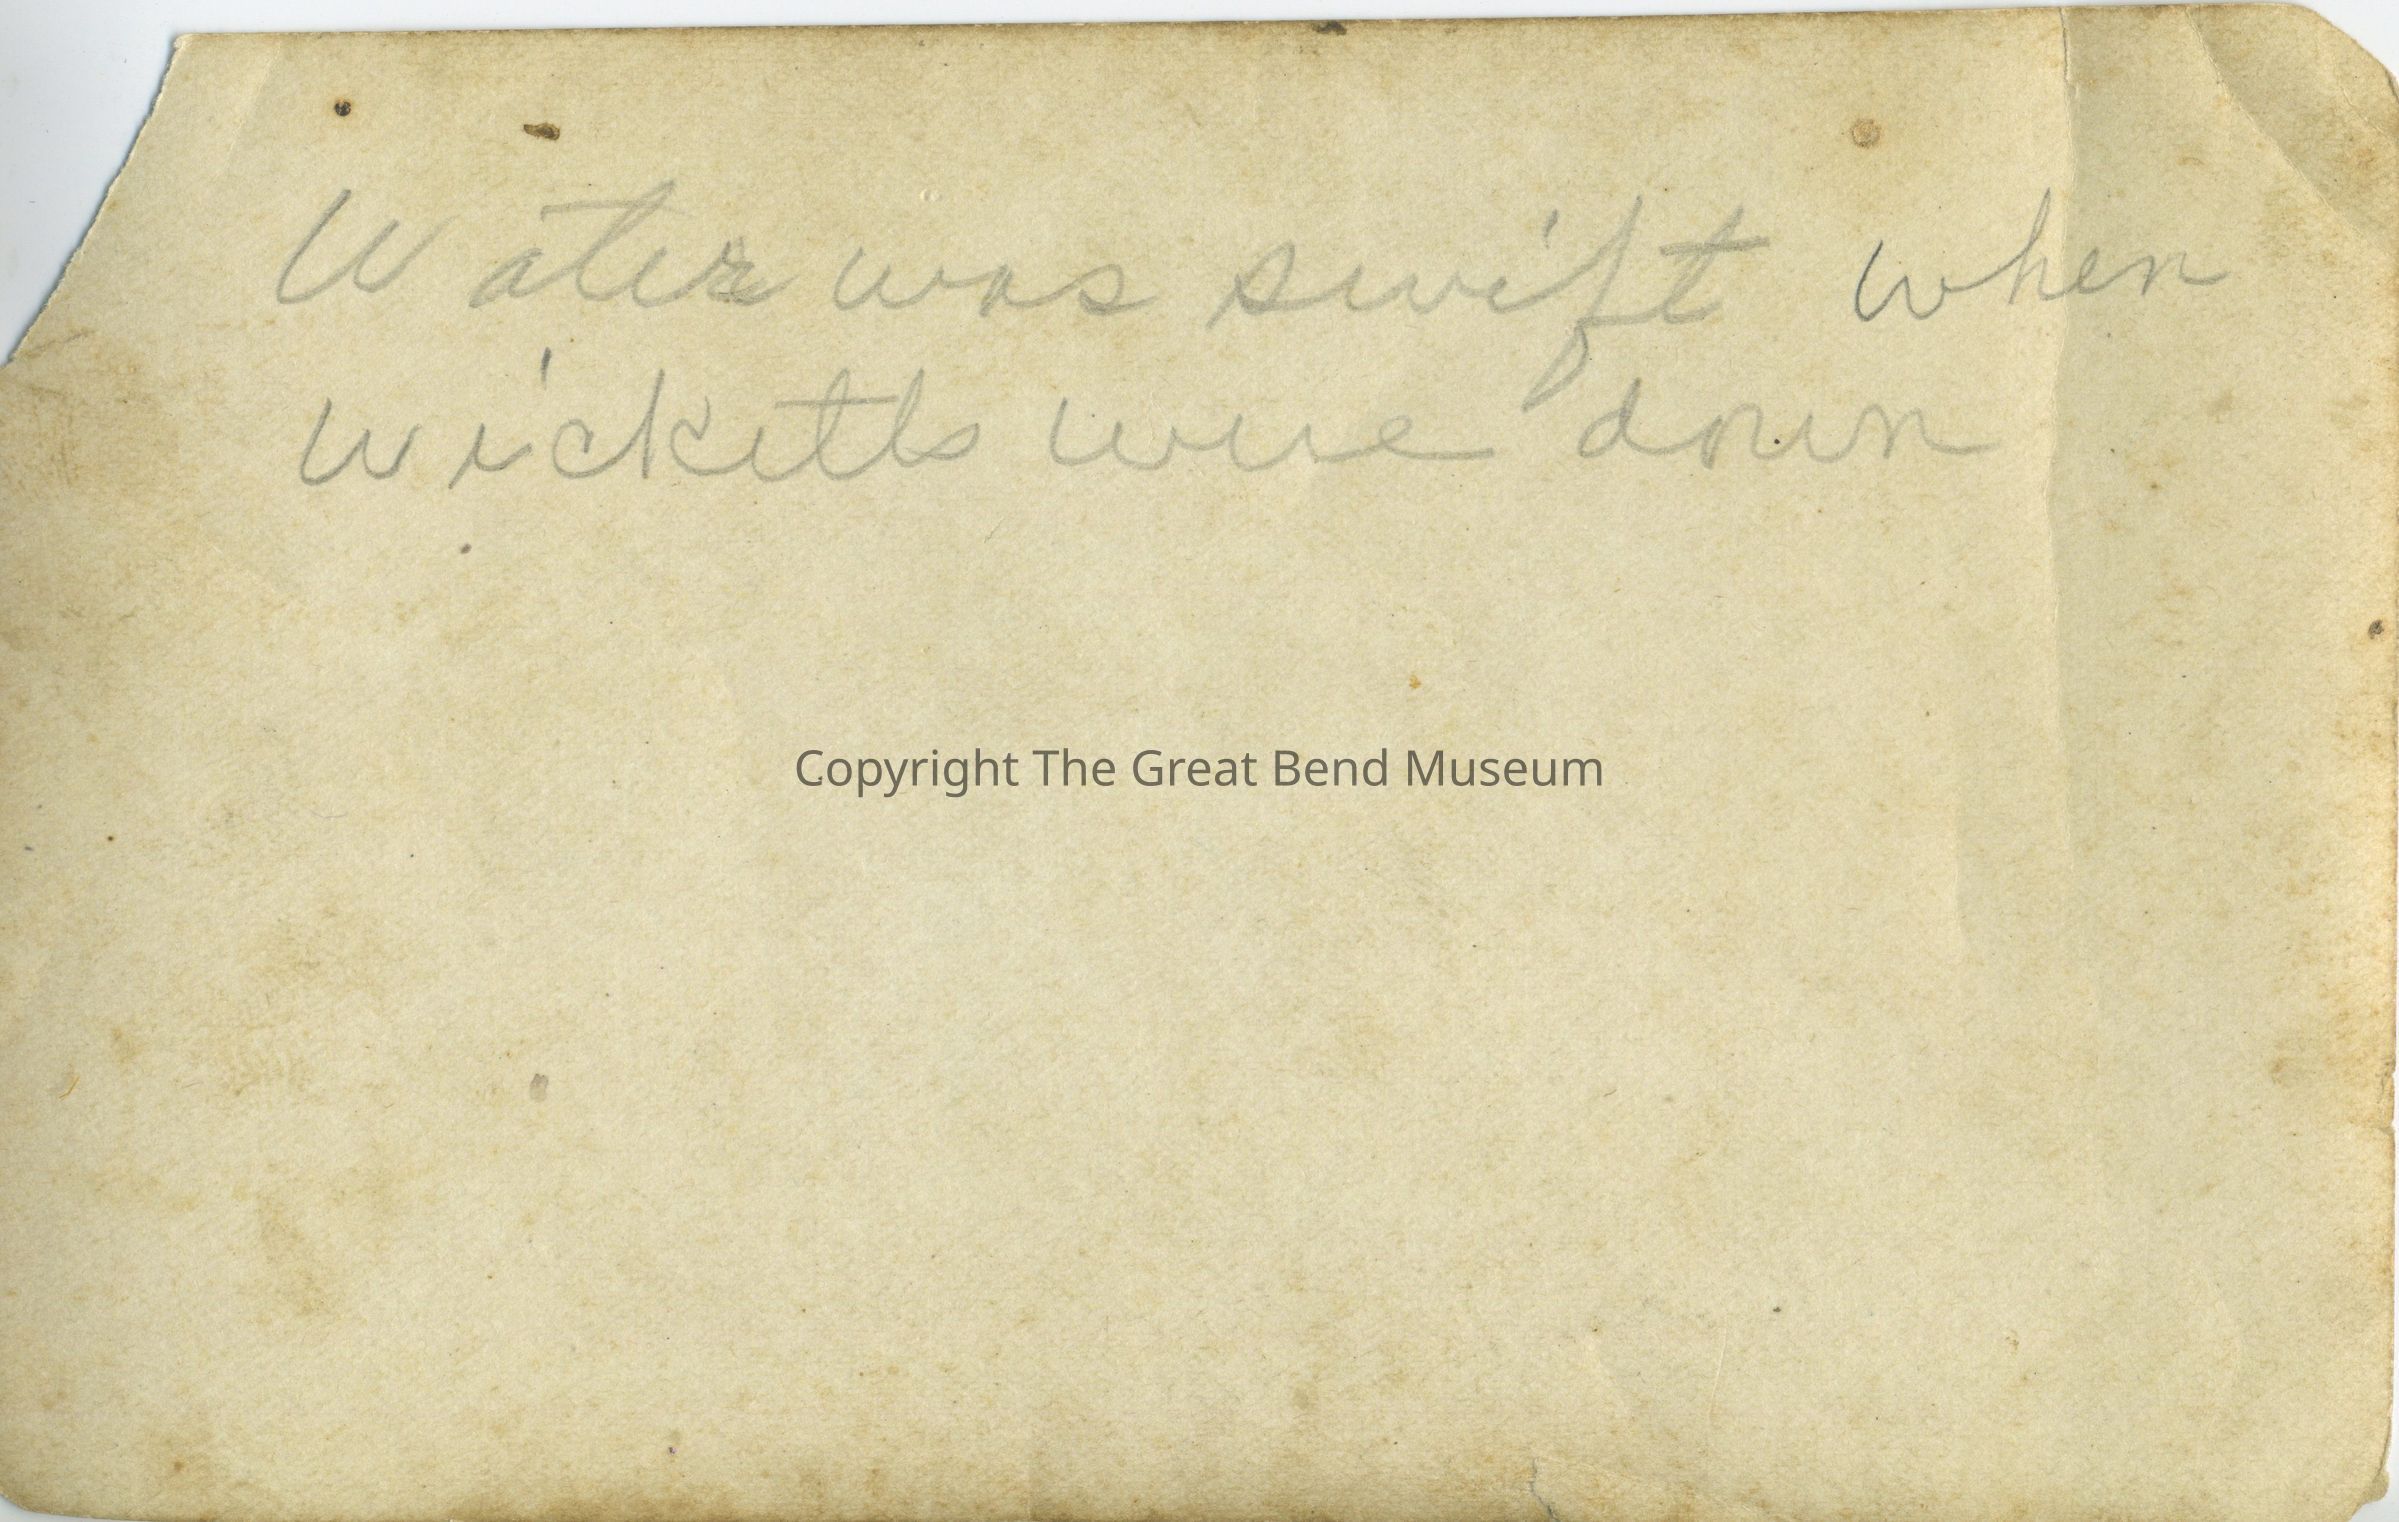 Water was swift when
wicketts were down
Copyright The Great Bend Museum